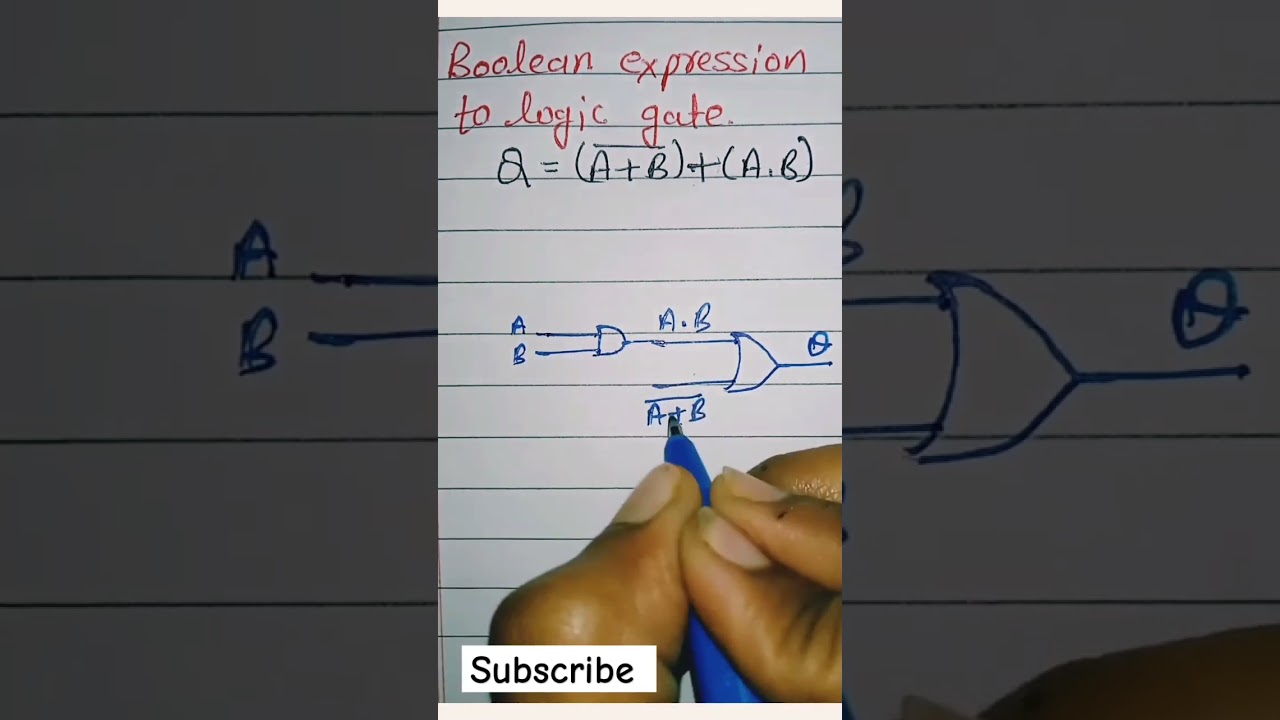 Boolean expression
to logic gate.
Q = (\overline{A+B})+(A.B)
A
B
A.B
Q
\overline{A+B}
A
B
Q
Subscribe